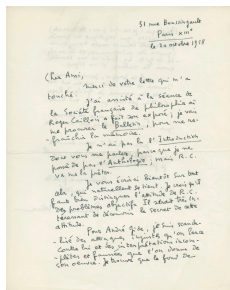 31 rue Boussingault
Paris XIIIe
le 20 octobre 1938
Cher Ami,
merci de votre lettre qui m'a
touché.
J'ai assisté à la séance de
la Société française de philosophie où
Roger Caillois a fait son exposé, je vais
me procurer le Bulletin, pour me ra-
fraîchir la mémoire.
Je n'ai pas lu l'Introduction
dont vous me parlez, parce que je ne
possède pas l'Anthologie, mais R.C.
va me la prêter.
Je vous écrirai bientôt sur tout
cela, qui naturellement se tient. Je crois qu'il
faut bien distinguer l'attitude de R.C.
des problèmes objectifs. Il serait très in-
téressant de découvrir le secret de cette
attitude.
Pour André Gide, je suis scanda-
lisé des attaques injustes qu'on lance
contre lui et des interprétations incom-
plètes et fausses que l'on donne de
son œuvre. Je trouve que le fond de